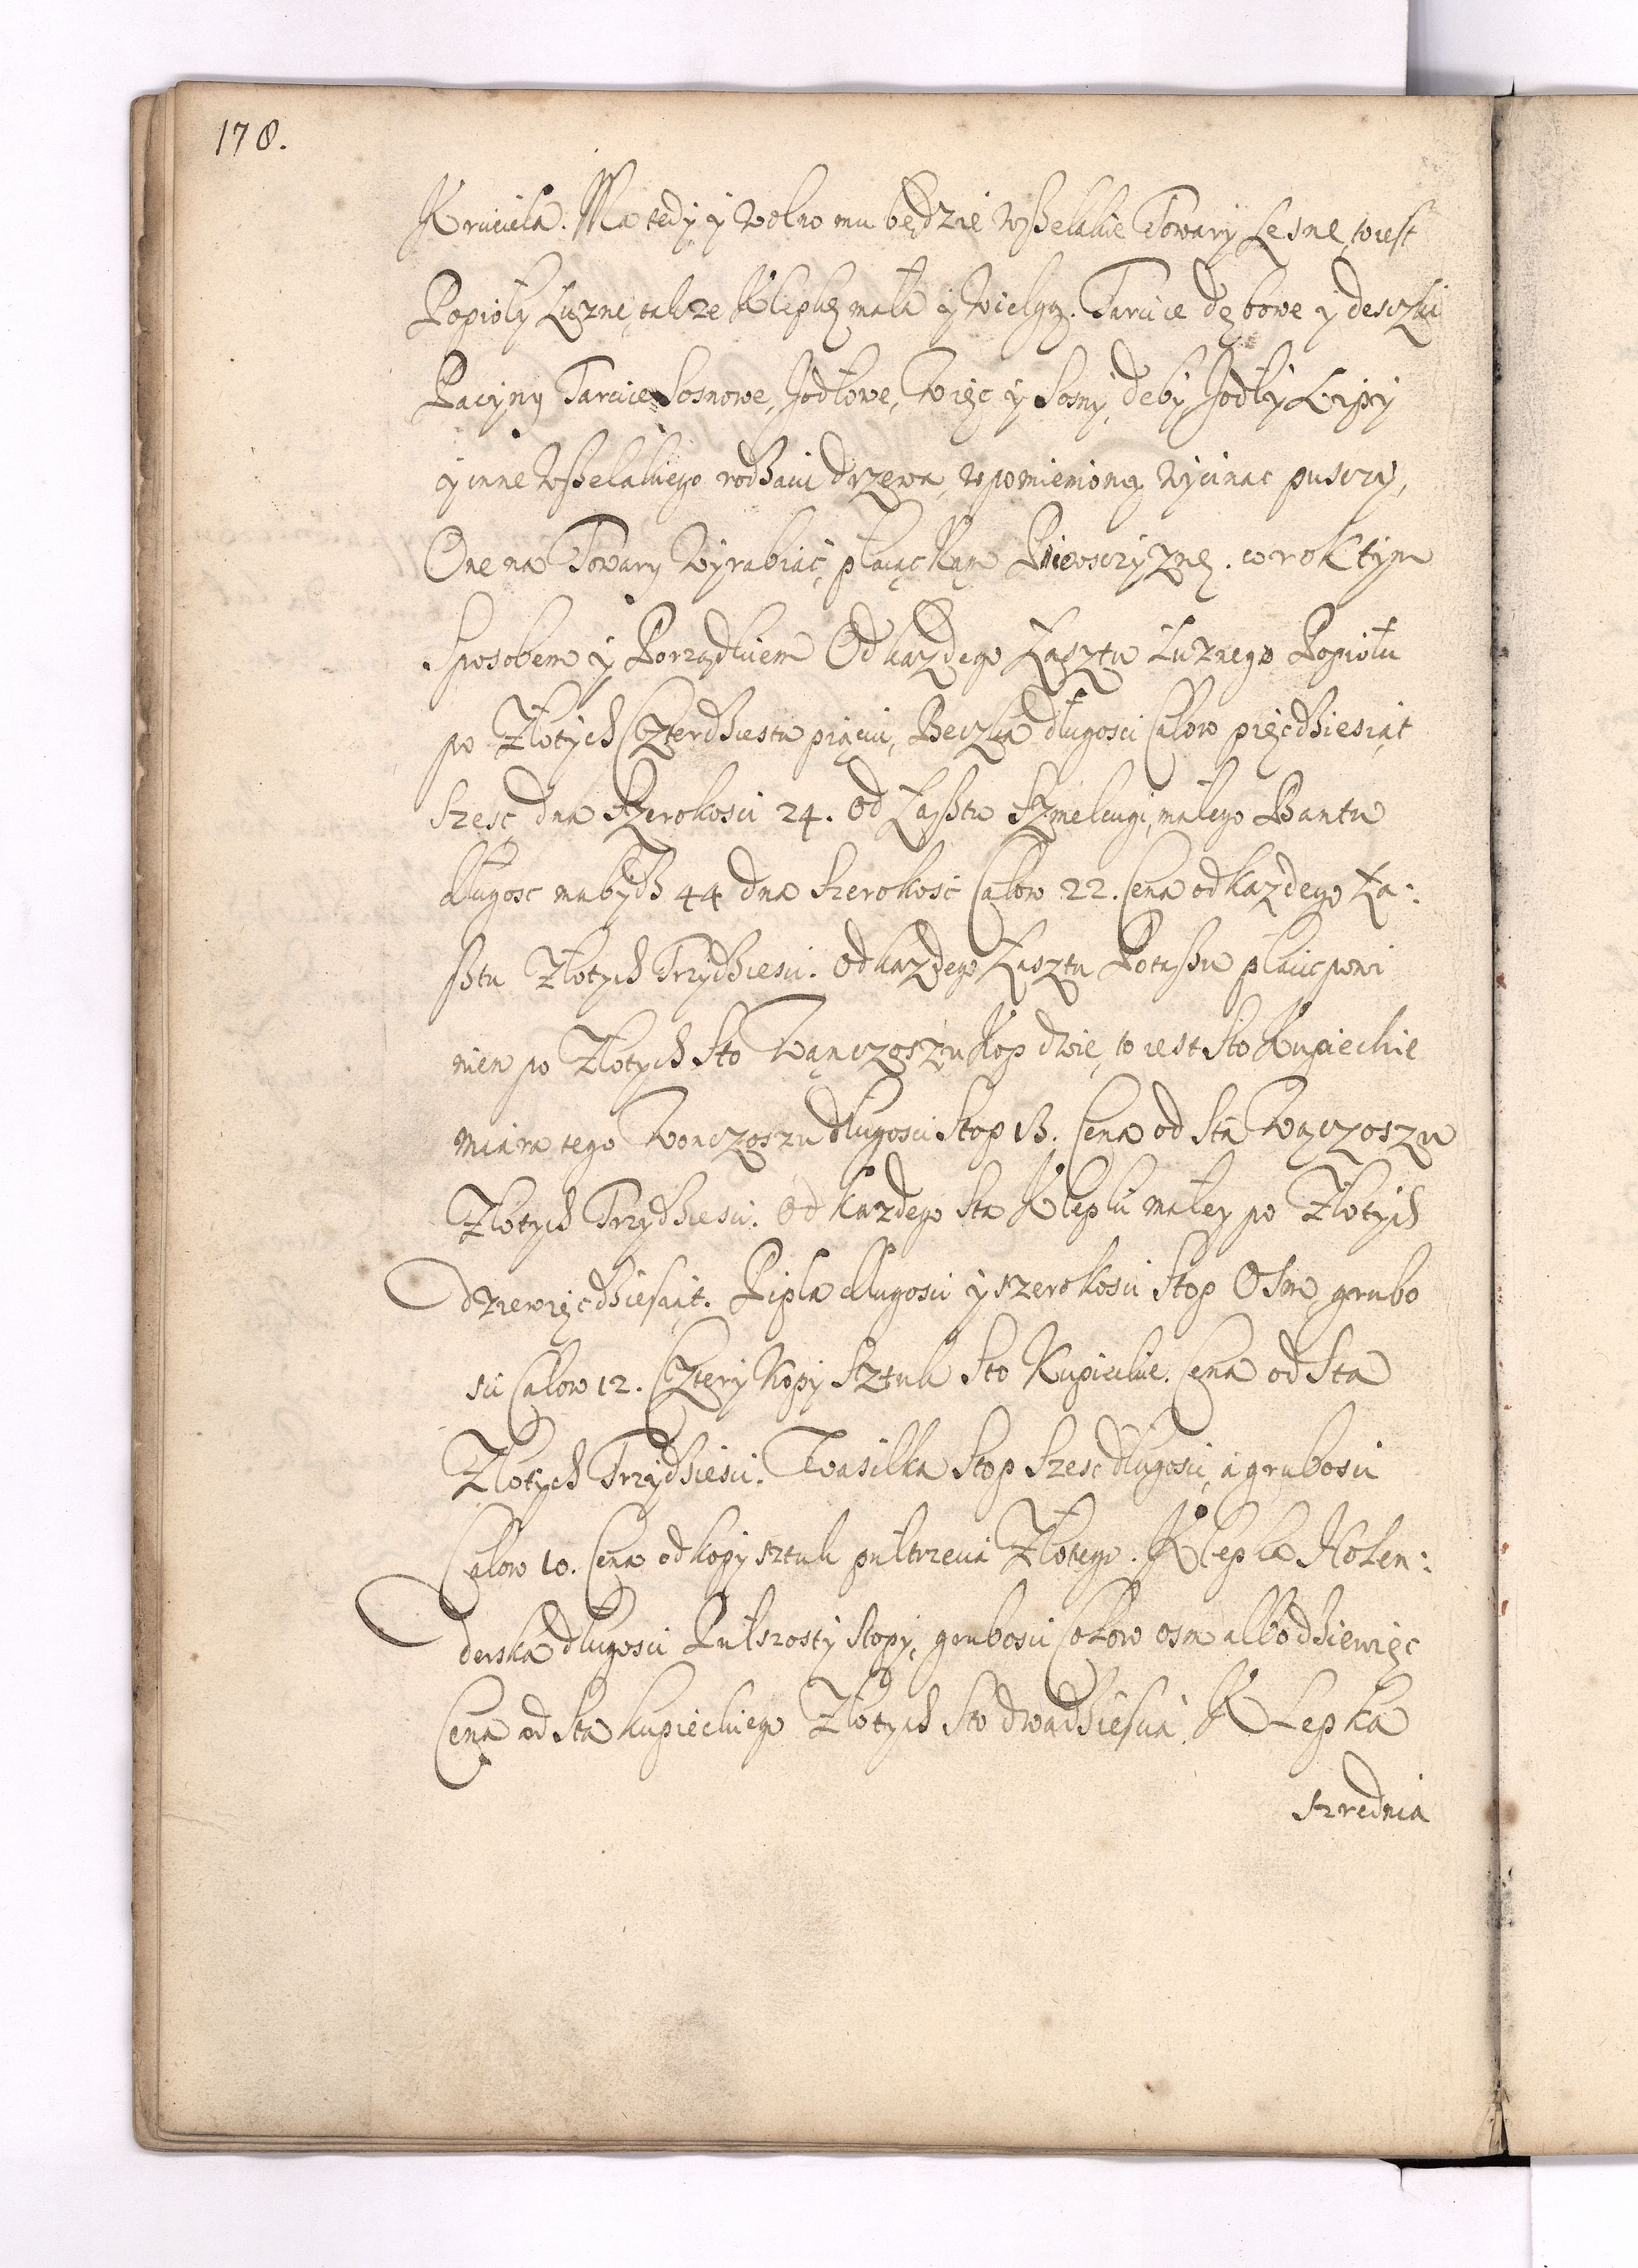 178.
Kruciela. Ma tedy y Wolno mu będzie wszelakie Towary Lesne, to iest
Popioły Łuzne, takze Klepkę mała y Wielgą. Tarcice dębowe y desczki
Tarcice Sosnowe, Jodłowe, Więc y Sosny, deby Jodły Lipy
y inne wszelakiego rodzaiu drzewa, wpomienioney wycinac pusczy,
One na Towary Wyrabiać, płacąc Nam co rok tym
Sposobem y Porządkiem Od kazdego Łasztu Łuznego Popiołu
po Złotych Czterdziestu pięciu, Beczka długosci Calow pięcdziesiąt
szesc, dna Szerokosci 24. od Łasztu Szmelcugi, małego Bantu
długosc ma bydz 44 dna Szerokosc Calow 22. Cena od kazdego Ła:
sztu Złotych Trzydziesci. Od kazdego Łasztu Potaszu płacic powi
nien po Złotych Sto Wanczoszu Kop dwie, to iest Sto Kupieckie
miara tego Wonczoszu długosci Stop 13. Cena od Sta Wączoszu
Złotych Trzydziesci. Od Kazdego Sta Klepki małey po Złotych
dziewięcdziesiąt. Pipla długosci y szerokosci Stop Osm, grubo
sci Calow 12. Cztery Kopy Sztuk Sto Kupieckie. Cena od Sta
Złotych Trzydziesci. Wasilka Stop Szesc długosci, a grubosci
Calow 10. Cena od kopy sztuk pułtrzecia Złotego. Klepka Holen:
derska długosci Pułszosty stopy, grubosci Calow osm albo dziewięc
Cena od Sta kupieckiego Złotych Sto dwadziescia. Klepka
szrednia